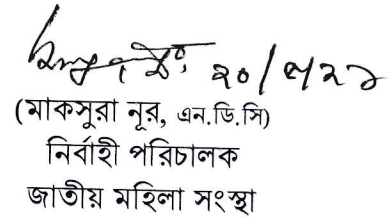 (মাকসুরা নূর, এন.ডি.সি)
নির্বাহী পরিচালক
জাতীয় মহিলা সংস্থা